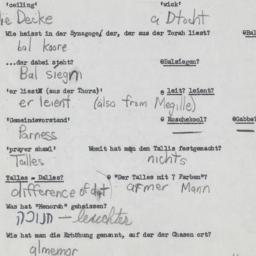 'ceiling' 'wick'
die Decke a Dtocht
Wie heisst in der Synagoge, der, der aus der Torah liest?
bal koore
...der dabei steht? @Balsiegen?
Bal siegn
'er liest (aus der Thora)' @ leit? leient?
er leient (also from Megille)
'Gemeindevorstand' @ Roschekool? @Gabbe
Parness
'prayer shawl' Womit hat man den Tallis festgemacht?
Talles nichts
Talles = Dalles? @ "Der Talles mit 7 Farben"?
difference of dpt armer Mann
Was hat "Menorah" geheissen?
חנוכה — leuchter
Wie hat man die Erhöhung genannt, auf der der Chasen ort?
almemor